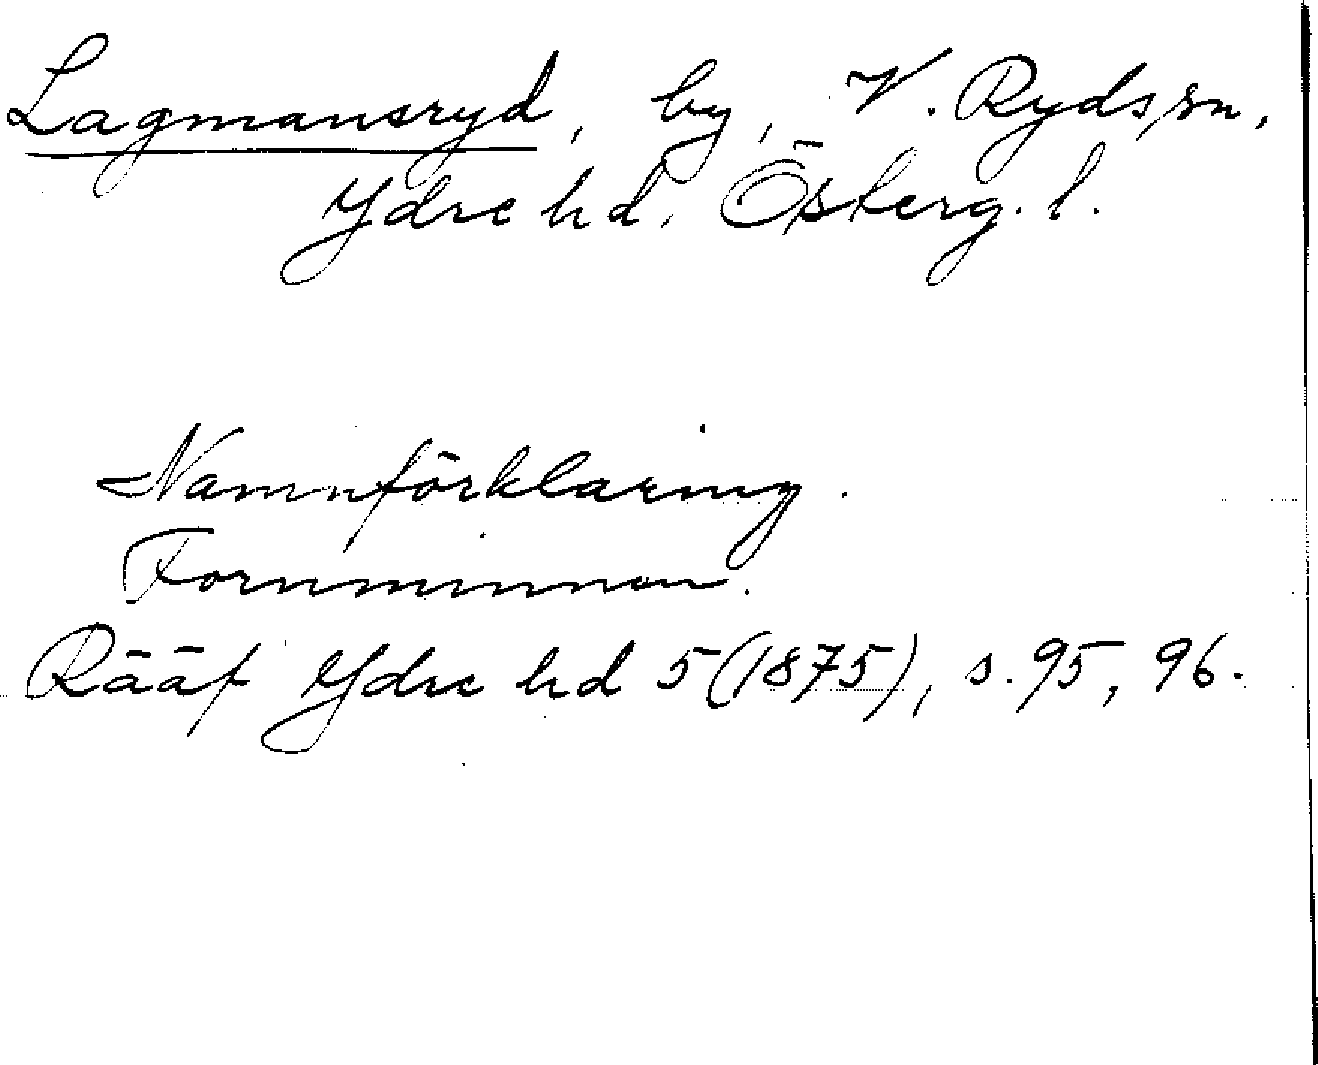 Lagmansryd, by, V. Ryds sn,
Ydre hd, Österg. l.
Namnförklaring.
Fornminnen.
Rääf Ydre hd 5 (1875), s. 95, 96.